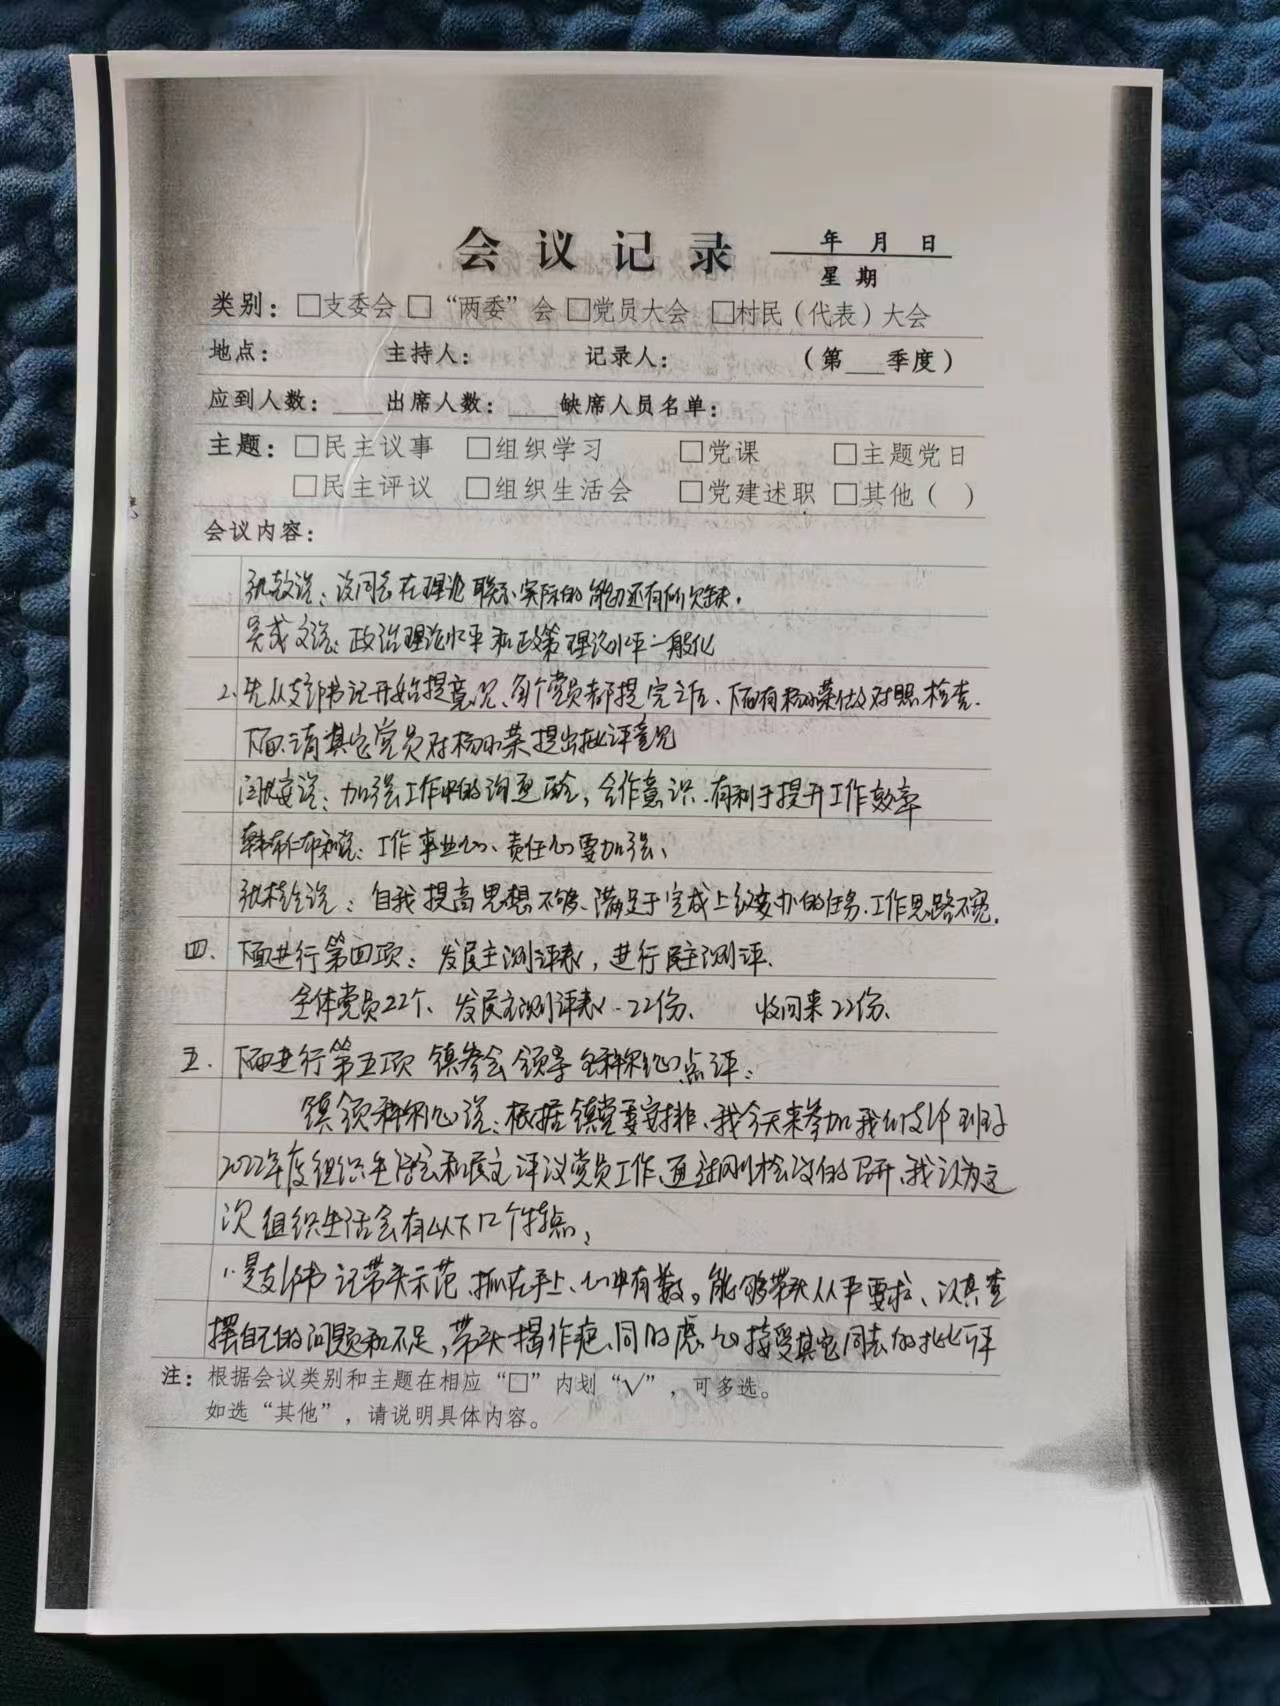 会议记录 ___年 月 日
星期
类别：□支委会 □“两委”会 □党员大会 □村民（代表）大会
地点： 主持人： 记录人： （第___季度）
应到人数：___出席人数：___缺席人员名单：
主题：□民主议事 □组织学习 □党课 □主题党日
□民主评议 □组织生活会 □党建述职 □其他（ ）
会议内容：
说：该同志在理论联系实际的能力还有所欠缺.
说：政治理论水平和政策理论水平一般化
2.先从支部书记开始提意见、每个党员都提完之后、下面有杨做对照检查.
下面请其它党员对杨提出批评意见
说：加强工作中的沟通，合作意识.有利于提升工作效率
说：工作事业心、责任心要加强、
说：自我提高思想不够、满足于完成上级要办的任务.工作思路不宽.
四. 下面进行第四项：发民主测评表，进行民主测评.
全体党员22个、发民主测评表22份、 收回来22份、
五. 下面进行第五项 镇参会领导 点评：
镇领 说：根据镇党委安排、我今天来参加我们支部班子
2022年度组织生活会和民主评议党员工作、通过刚才会议的召开、我认为这
次组织生活会有以下几个特点：
1.是支部书记带头示范、抓在手上、心中有数。能够带头从严要求、认真查
摆自己的问题和不足，带头、同时虚心接受其它同志的批评
注：根据会议类别和主题在相应“□”内划“√”，可多选。
如选“其他”，请说明具体内容。